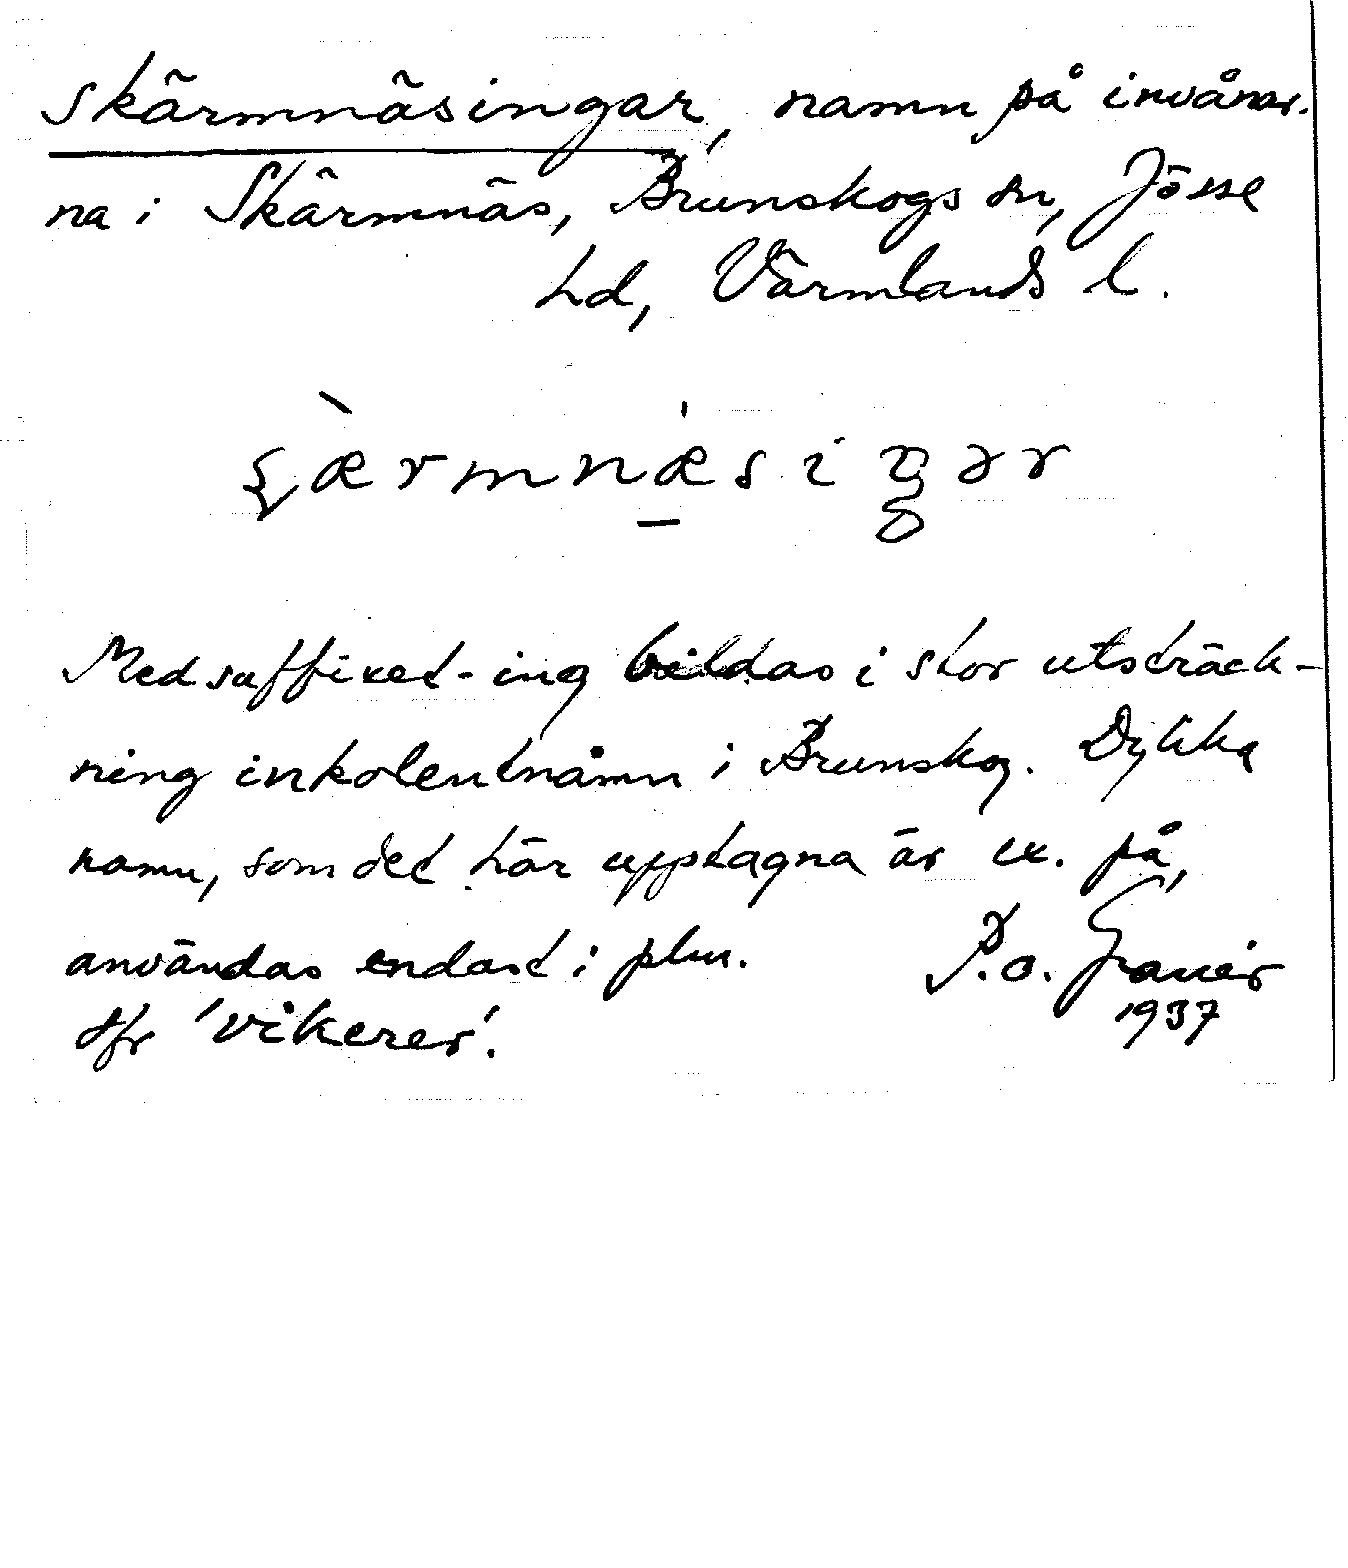 Skärmnäsingar, namn på invånar-
na i Skärmnäs, Brunskogs sn, Jösse
hd, Värmlands l.
Med suffixet -ing bildas i stor utsträck-
ning inkolentnamn i Brunskog. Dylika
namn, som det här upptagna är ex. på,
användas endast i plur. P. O. Granér
Jfr 'vikerer'. 1937